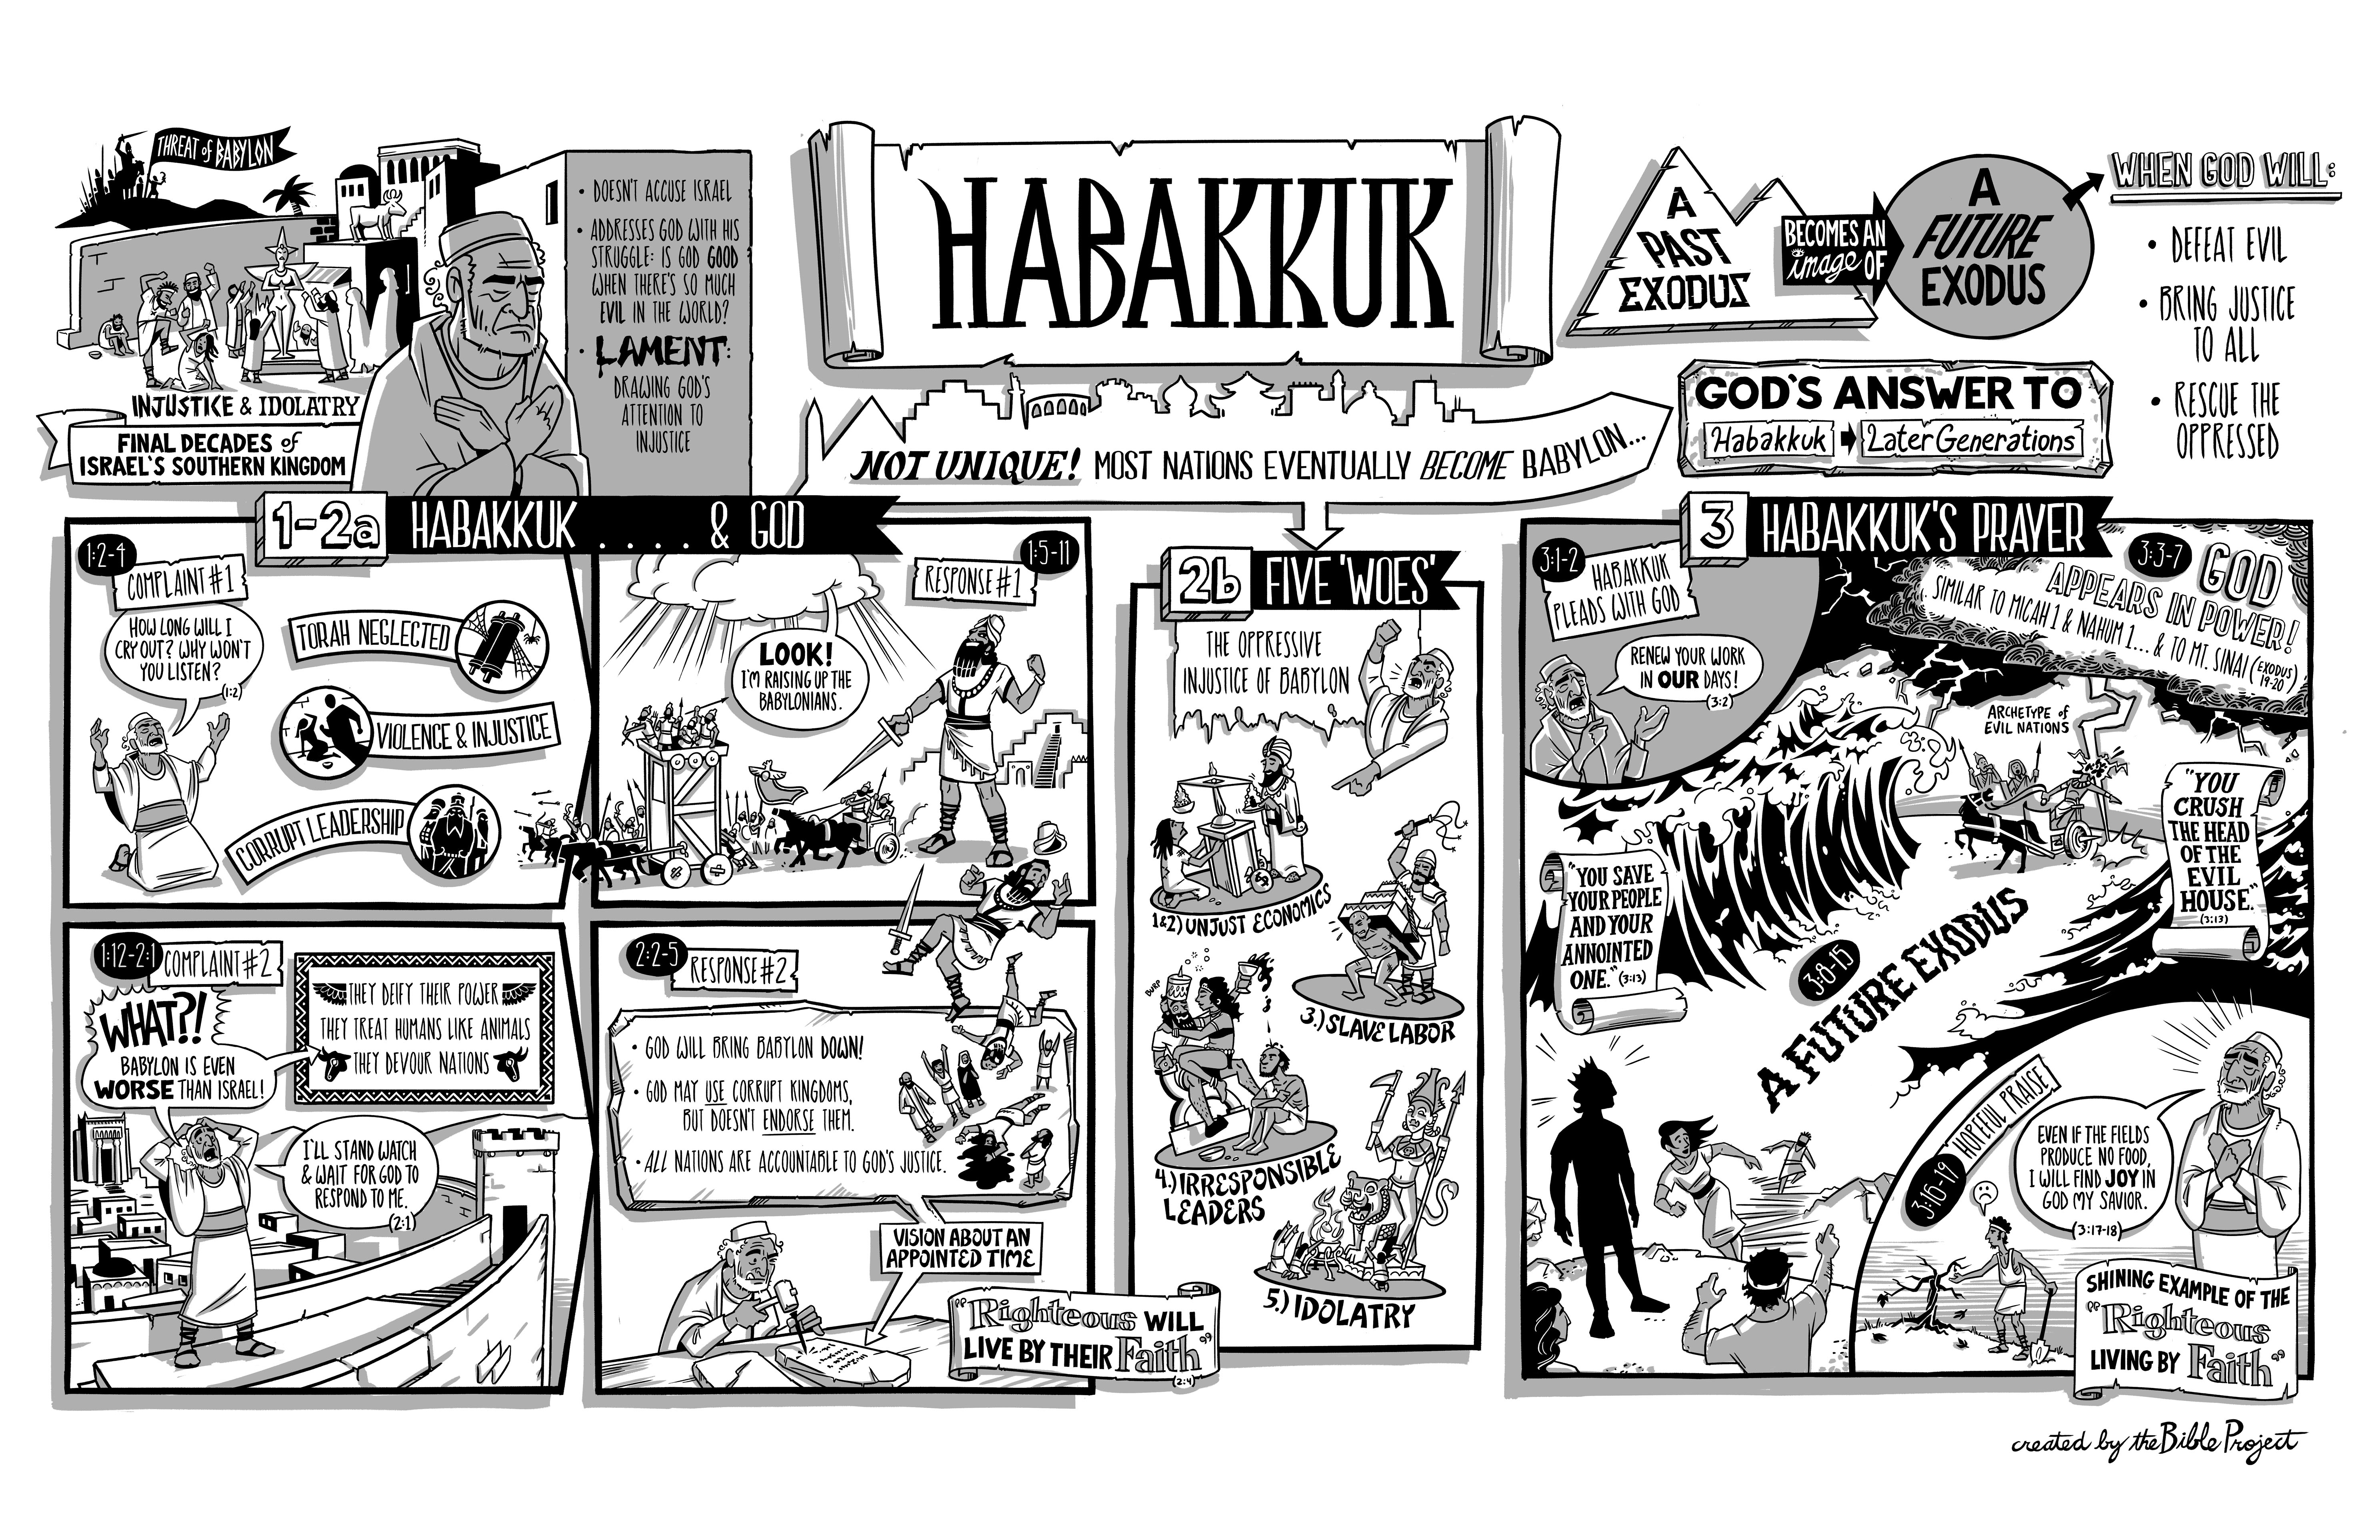 THREAT of BABYLON
INJUSTICE & IDOLATRY
FINAL DECADES of
ISRAEL'S SOUTHERN KINGDOM
• DOESN'T ACCUSE ISRAEL
• ADDRESSES GOD WITH HIS
STRUGGLE: IS GOD GOOD
WHEN THERE'S SO MUCH
EVIL IN THE WORLD?
• LAMENT:
DRAWING GOD'S
ATTENTION TO
INJUSTICE
HABAKKUK
NOT UNIQUE! MOST NATIONS EVENTUALLY BECOME BABYLON...
A
PAST
EXODUS
BECOMES AN
image OF
A
FUTURE
EXODUS
WHEN GOD WILL:
• DEFEAT EVIL
• BRING JUSTICE
TO ALL
• RESCUE THE
OPPRESSED
GOD'S ANSWER TO
Habakkuk
Later Generations
1-2a HABAKKUK .... & GOD
1:2-4
COMPLAINT #1
HOW LONG WILL I
CRY OUT? WHY WON'T
YOU LISTEN?
(1:2)
TORAH NEGLECTED
VIOLENCE & INJUSTICE
CORRUPT LEADERSHIP
1:5-11
RESPONSE #1
LOOK!
I'M RAISING UP THE
BABYLONIANS.
1:12-2:1
COMPLAINT #2
WHAT?!
BABYLON IS EVEN
WORSE THAN ISRAEL!
THEY DEIFY THEIR POWER
THEY TREAT HUMANS LIKE ANIMALS
THEY DEVOUR NATIONS
I'LL STAND WATCH
& WAIT FOR GOD TO
RESPOND TO ME.
(2:1)
2:2-5
RESPONSE #2
• GOD WILL BRING BABYLON DOWN!
• GOD MAY USE CORRUPT KINGDOMS,
BUT DOESN'T ENDORSE THEM.
• ALL NATIONS ARE ACCOUNTABLE TO GOD'S JUSTICE.
VISION ABOUT AN
APPOINTED TIME
"Righteous WILL
LIVE BY THEIR Faith"
(2:4)
2b FIVE 'WOES'
THE OPPRESSIVE
INJUSTICE OF BABYLON
1&2) UNJUST ECONOMICS
3.) SLAVE LABOR
BURP
4.) IRRESPONSIBLE
LEADERS
5.) IDOLATRY
3 HABAKKUK'S PRAYER
3:1-2
HABAKKUK
PLEADS WITH GOD
RENEW YOUR WORK
IN OUR DAYS!
(3:2)
3:3-7
GOD
APPEARS IN POWER!
SIMILAR TO MICAH 1 & NAHUM 1... & TO MT. SINAI (EXODUS
19-20)
ARCHETYPE of
EVIL NATIONS
"YOU
CRUSH
THE HEAD
OF THE
EVIL
HOUSE."
(3:13)
"YOU SAVE
YOUR PEOPLE
AND YOUR
ANNOINTED
ONE." (3:13)
3:8-15
A FUTURE EXODUS
3:16-19
HOPEFUL PRAISE
EVEN IF THE FIELDS
PRODUCE NO FOOD,
I WILL FIND JOY IN
GOD MY SAVIOR.
(3:17-18)
SHINING EXAMPLE OF THE
"Righteous
LIVING BY Faith"
created by the Bible Project